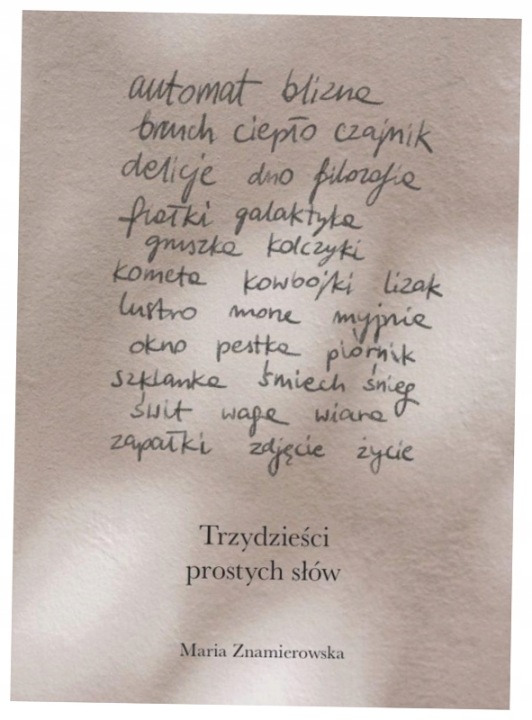 automat blizna
bruch ciepło czajnik
delicje dno filozofia
fiołki galaktyka
gruszka kolczyki
kometa kowbojki lizak
lustro mona myjnia
okno pestka piórnik
szklanka śmiech śnieg
świt waga wiara
zapałki zdjęcie życie
Trzydzieści
prostych słów
Maria Znamierowska